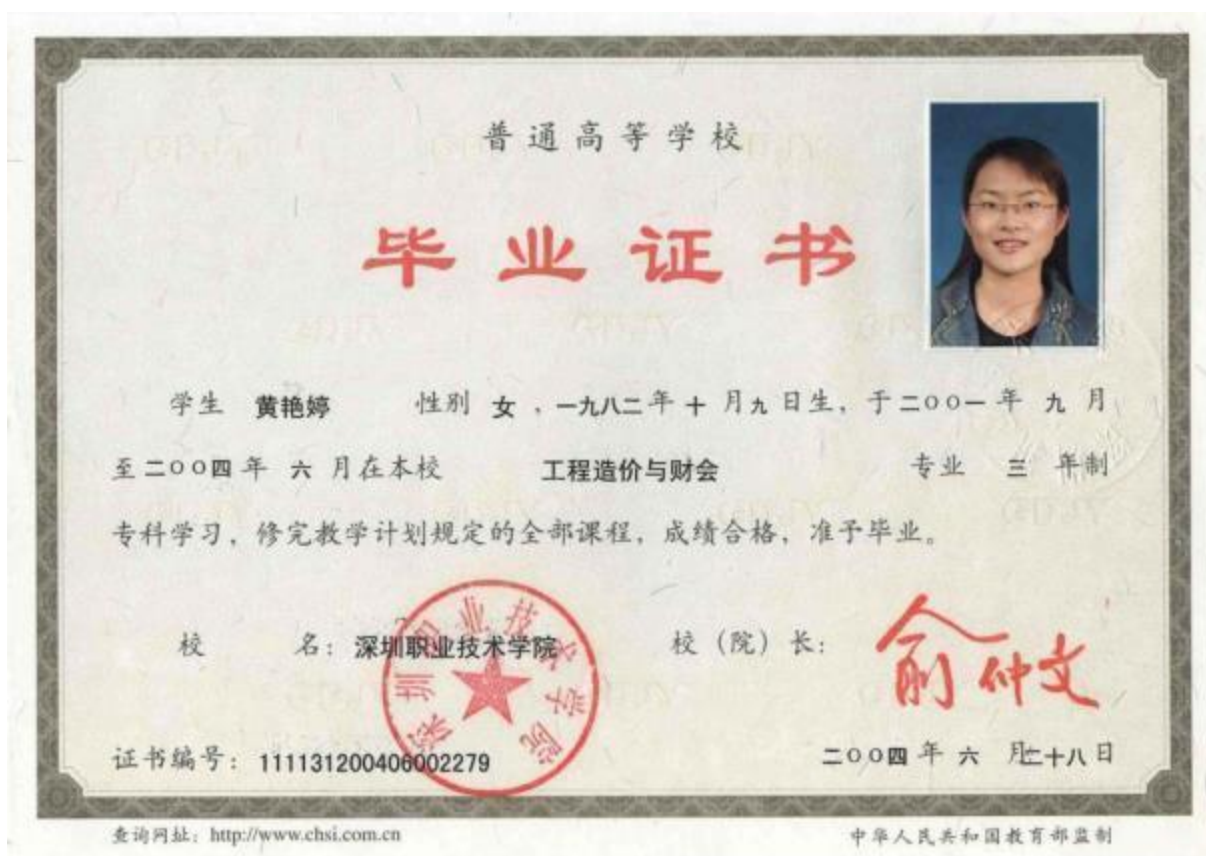 普通高等学校
毕业证书
学生 黄艳婷 性别 女，一九八二年十月九日生，于二〇〇一年九月
至二〇〇四年六月在本校 工程造价与财会 专业 三 年制
专科学习，修完教学计划规定的全部课程，成绩合格，准予毕业。
校 名：深圳职业技术学院 校（院）长：俞仲文
深圳职业技术学院
证书编号：111131200406002279 二〇〇四年六月二十八日
查询网址：http://www.chsi.com.cn 中华人民共和国教育部监制